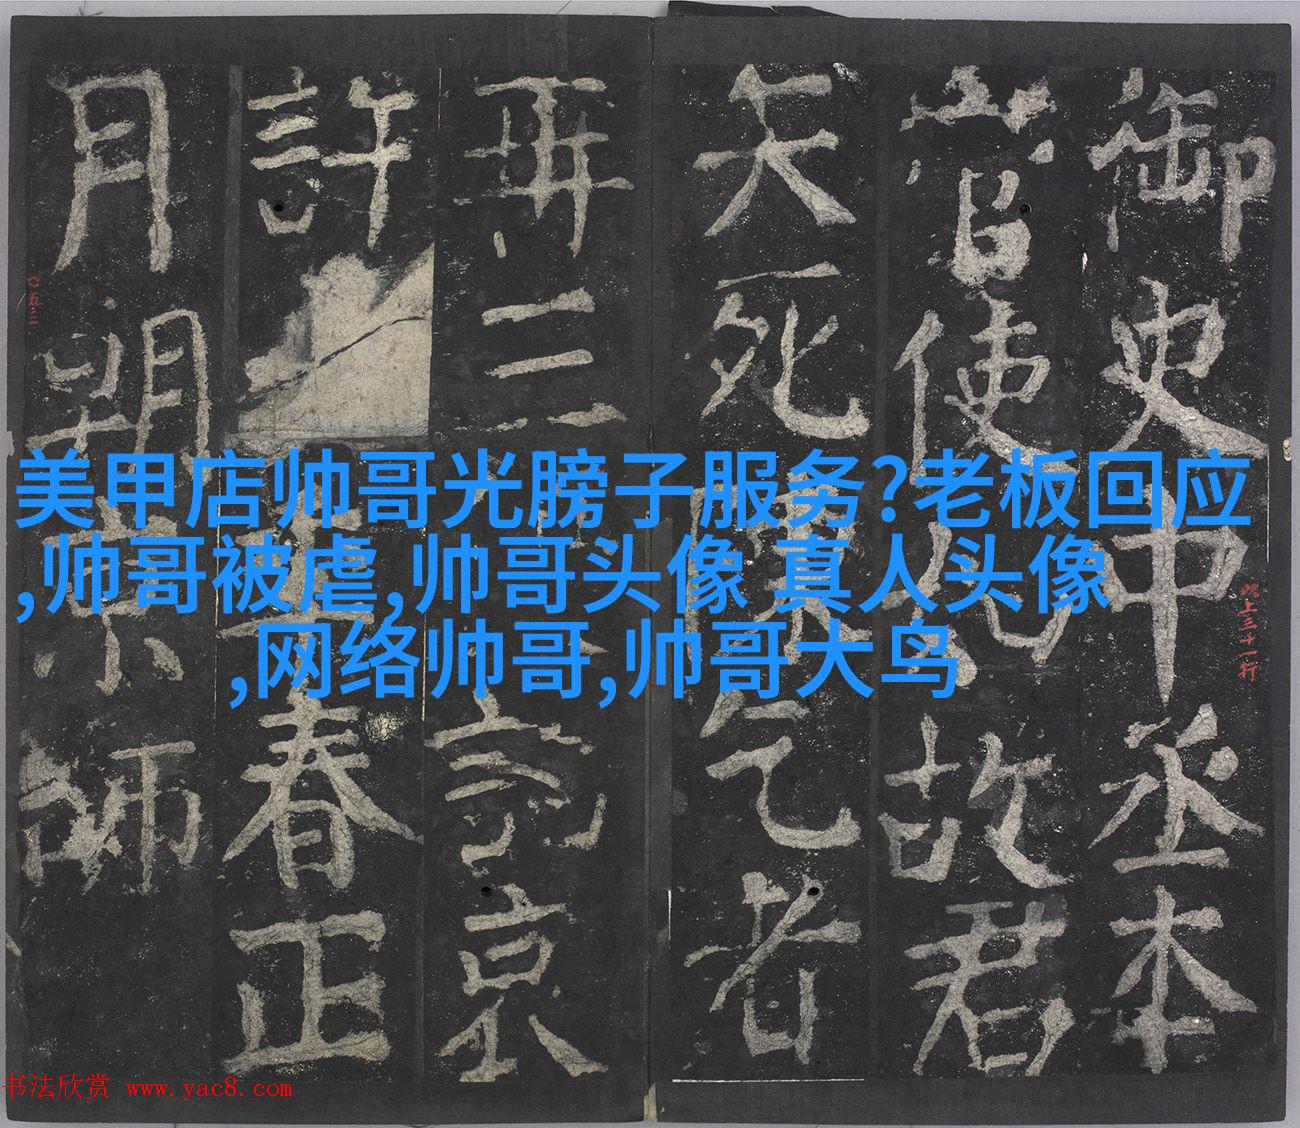 御史中丞本
使故君
矢死乞者
再三京
許春正
月朔京師
以上三十一行
〇五三
美甲店帅哥光膀子服务?老板回应
,帅哥被虐,帅哥头像 真人头像
,网络帅哥,帅哥大鸟
书法欣赏 www.yac8.com